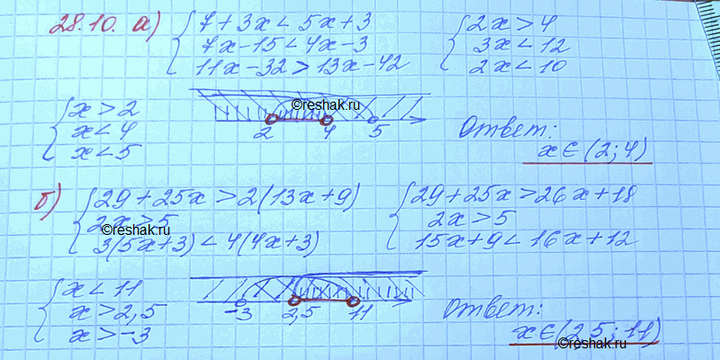 28.10. а) { 7 + 3x < 5x + 3
7x - 15 < 4x - 3
11x - 32 > 13x - 42
{ 2x > 4
3x < 12
2x < 10
{ x > 2
x < 4
x < 5
©reshak.ru
2 4 5
Ответ:
x ∈ (2; 4)
б) { 29 + 25x > 2(13x + 9)
2x > 5
3(5x + 3) < 4(4x + 3)
©reshak.ru
{ 29 + 25x > 26x + 18
2x > 5
15x + 9 < 16x + 12
{ x < 11
x > 2,5
x > -3
-3 2,5 11
Ответ:
x ∈ (2,5; 11)
©reshak.ru